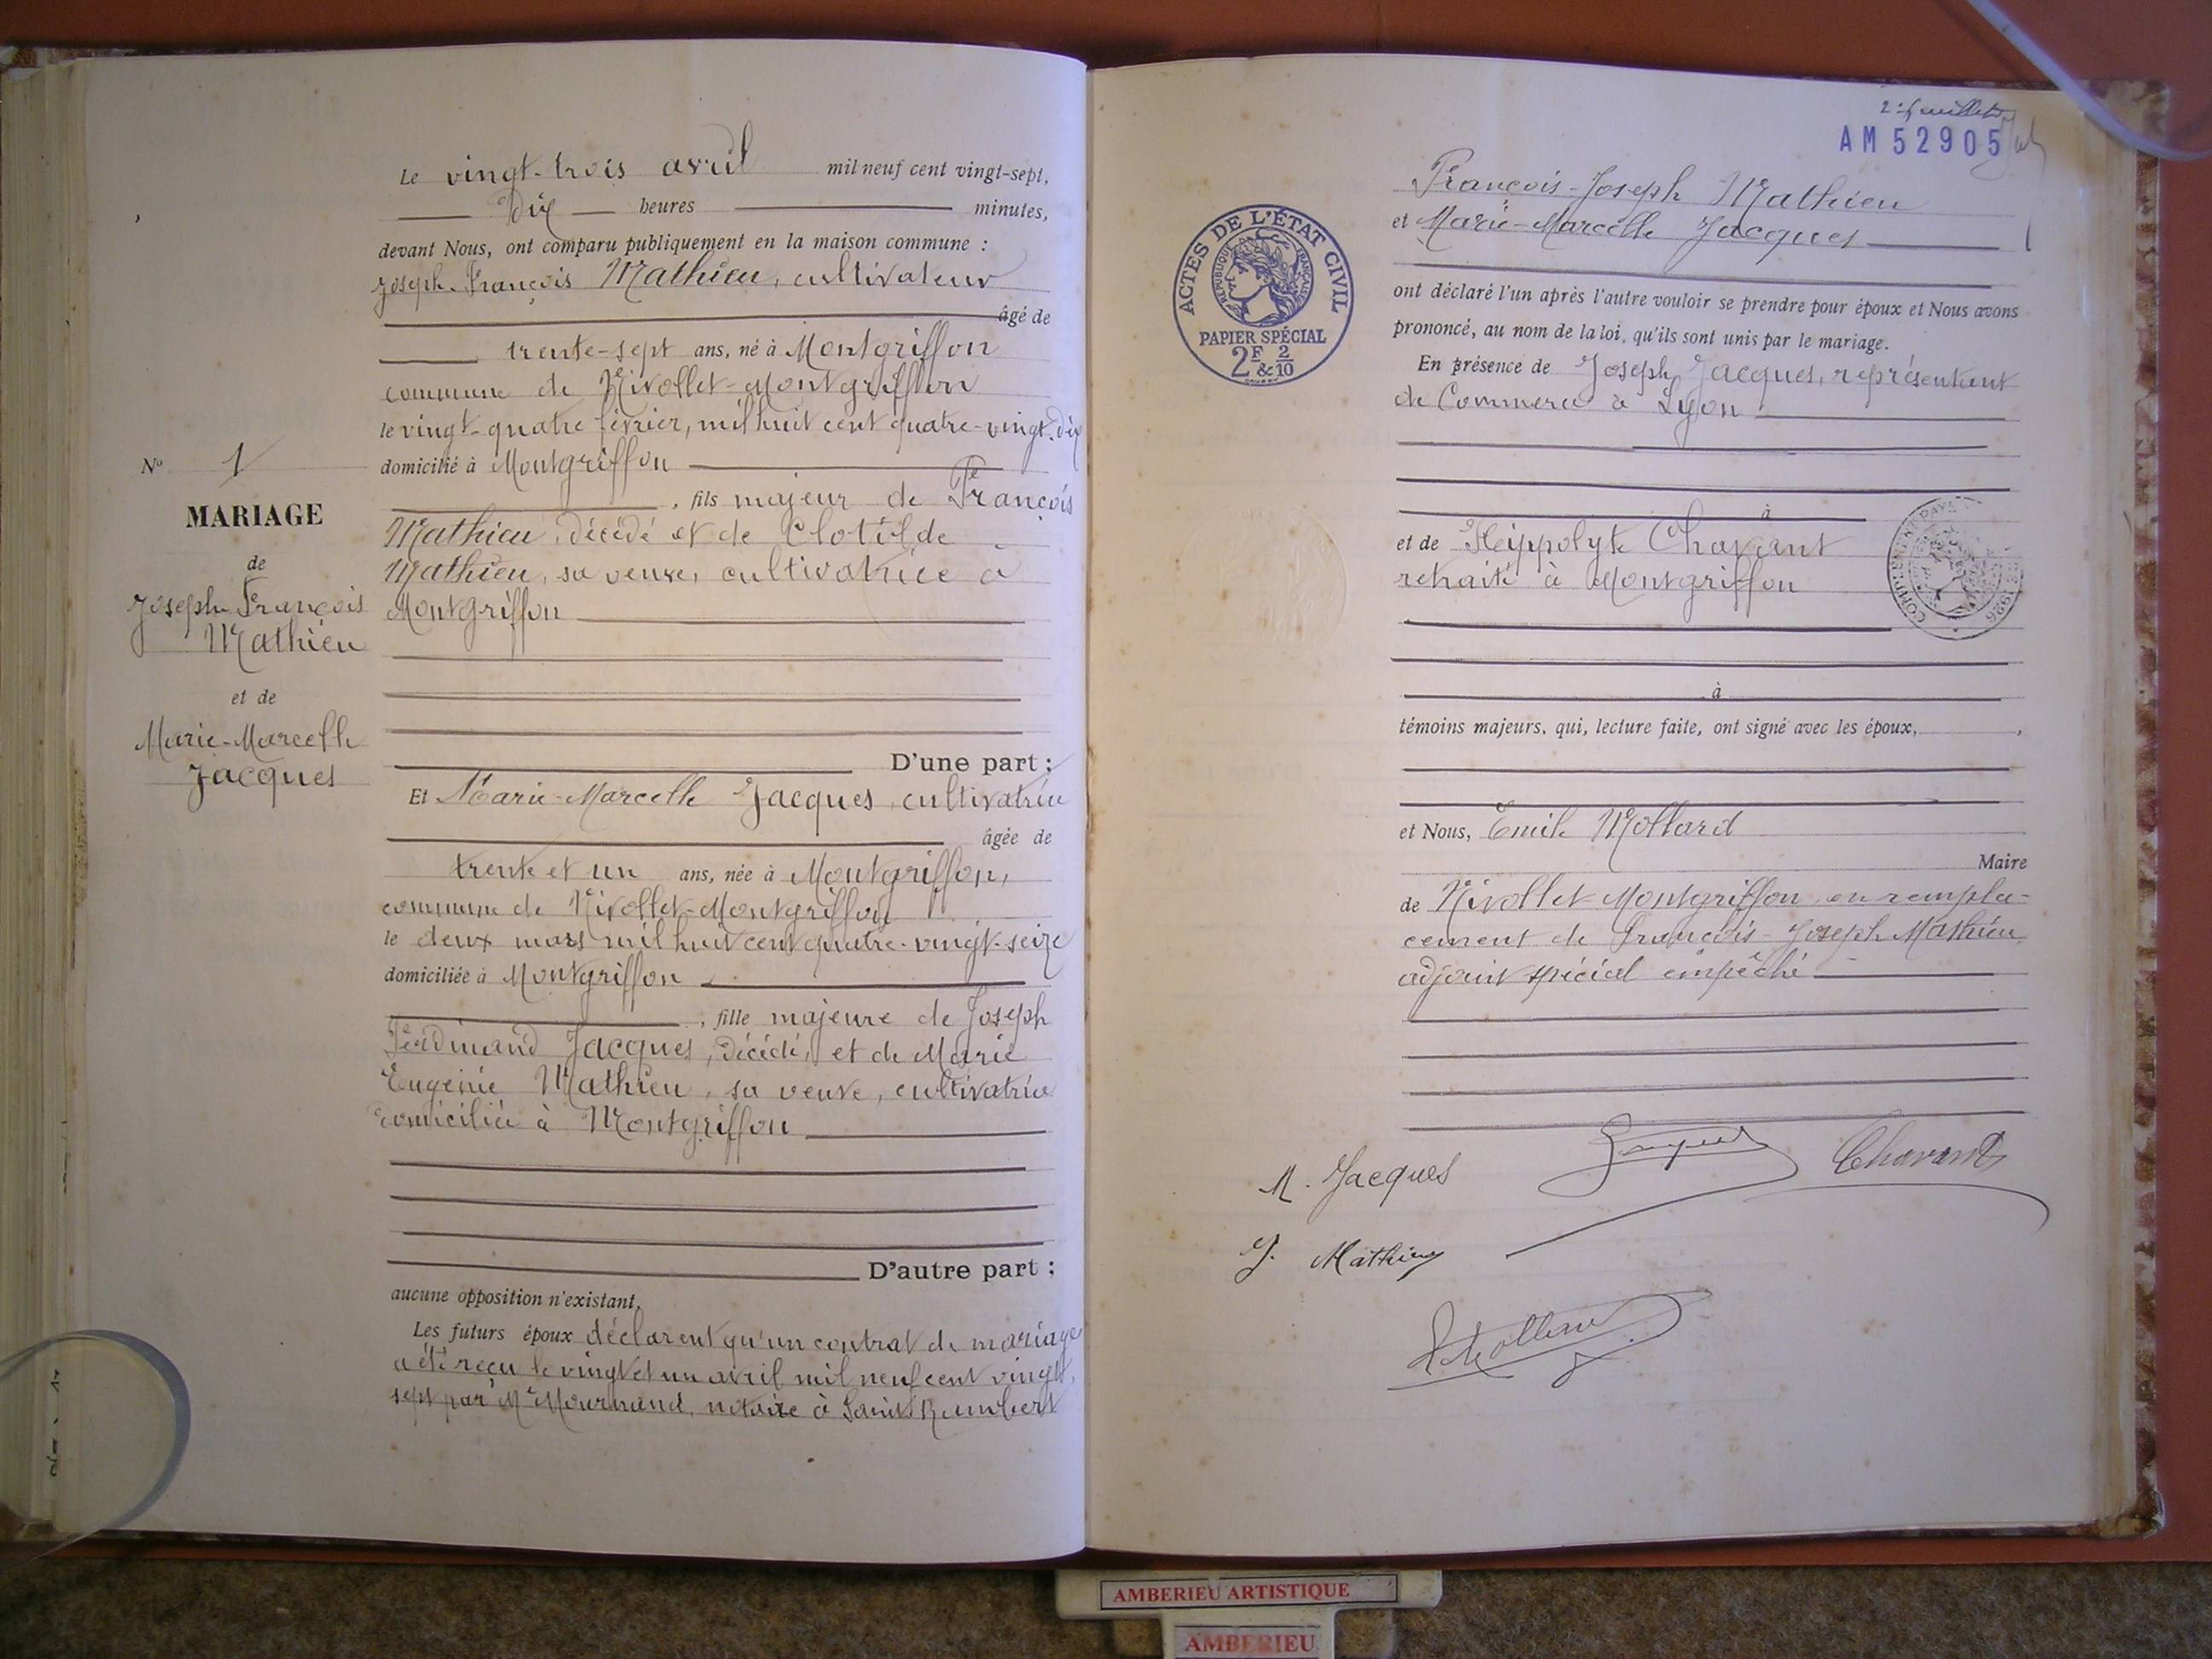 Le vingt-trois avril mil neuf cent vingt-sept,
Dix heures minutes,
devant Nous, ont comparu publiquement en la maison commune :
Joseph-François Mathieu, cultivateur
âgé de
trente-sept ans, né à Montgriffon
commune de Nivollet-Montgriffon
le vingt-quatre février, mil huit cent quatre-vingt-dix
domicilié à Montgriffon
, fils majeur de François
Mathieu, décédé et de Clotilde
Mathieu, sa veuve, cultivatrice à
Montgriffon
D'une part ;
Et Marie-Marcelle Jacques, cultivatrice
âgée de
trente et un ans, née à Montgriffon,
commune de Nivollet-Montgriffon
le deux mars mil huit cent quatre-vingt-seize
domiciliée à Montgriffon
, fille majeure de Joseph
Ferdinand Jacques, décédé, et de Marie
Eugénie Mathieu, sa veuve, cultivatrice
domiciliée à Montgriffon
D'autre part ;
aucune opposition n'existant.
Les futurs époux déclarent qu'un contrat de mariage
a été reçu le vingt et un avril mil neuf cent vingt
sept par Me Mournand, notaire à Saint Rambert
No 1
MARIAGE
de
Joseph-François
Mathieu
et de
Marie-Marcelle
Jacques
2e feuillet
AM 52905
François-Joseph Mathieu
et Marie-Marcelle Jacques
ont déclaré l'un après l'autre vouloir se prendre pour époux et Nous avons
prononcé, au nom de la loi, qu'ils sont unis par le mariage.
En présence de Joseph Jacques, représentant
de Commerce à Lyon
à
et de Hippolyte Chavant
retraité à Montgriffon
à
témoins majeurs, qui, lecture faite, ont signé avec les époux, ,
et Nous, Emile Mollard
Maire
de Nivollet Montgriffon en rempla-
cement de François-Joseph Mathieu
adjoint spécial empêché
M. Jacques
Jacques
Chavant
J. Mathieu
E Mollard
ACTES DE L'ÉTAT CIVIL
RÉPUBLIQUE FRANÇAISE
PAPIER SPÉCIAL
2F & 2/10
1926
AMBERIEU ARTISTIQUE
AMBERIEU